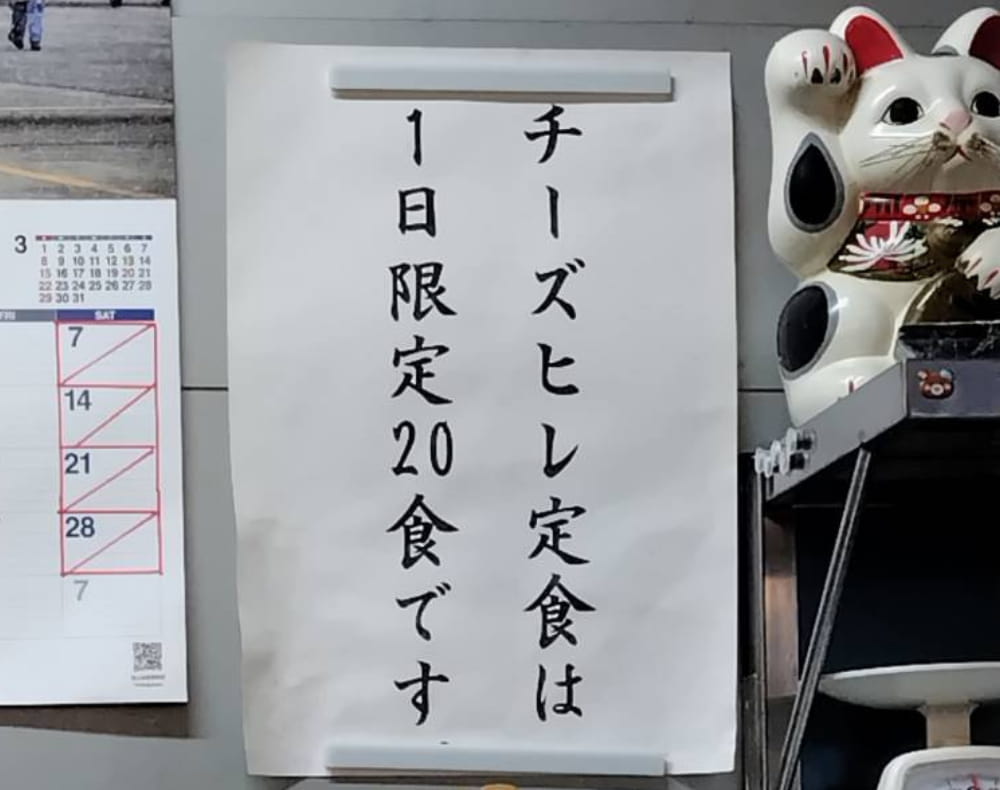 チーズヒレ定食は
1日限定20食です
3
1 2 3 4 5 6 7
8 9 10 11 12 13 14
15 16 17 18 19 20 21
22 23 24 25 26 27 28
29 30 31
FRI SAT
7
14
21
28
7